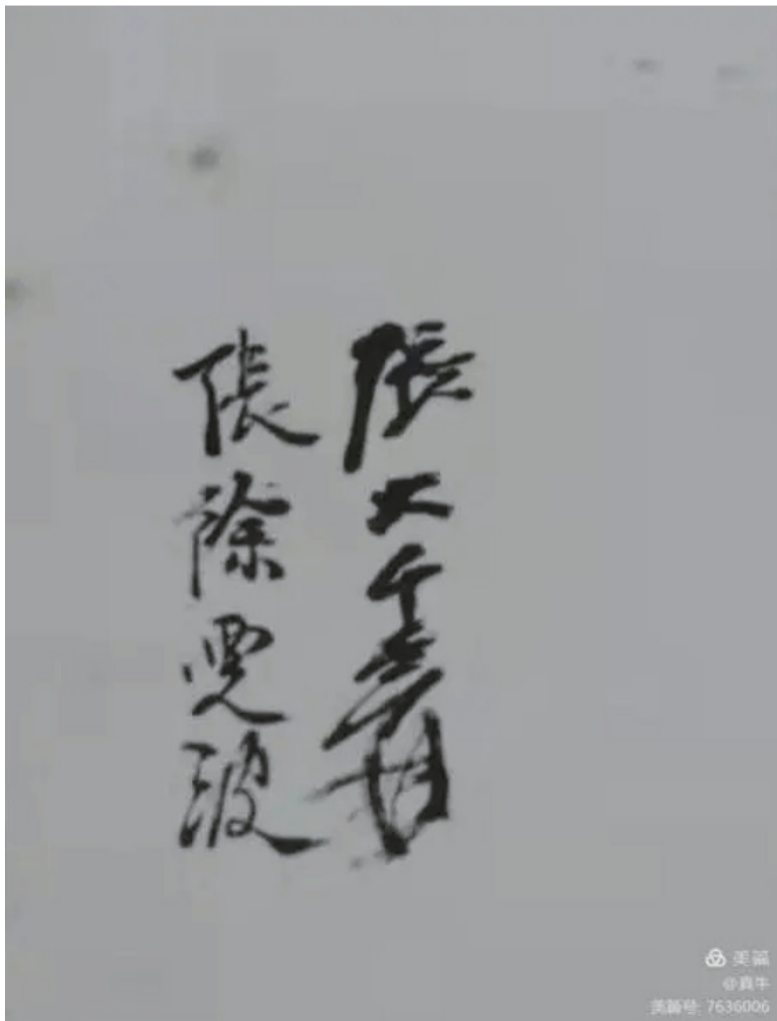 張大千爰
張徐雯波
美篇
@真牛
美篇号: 7636006